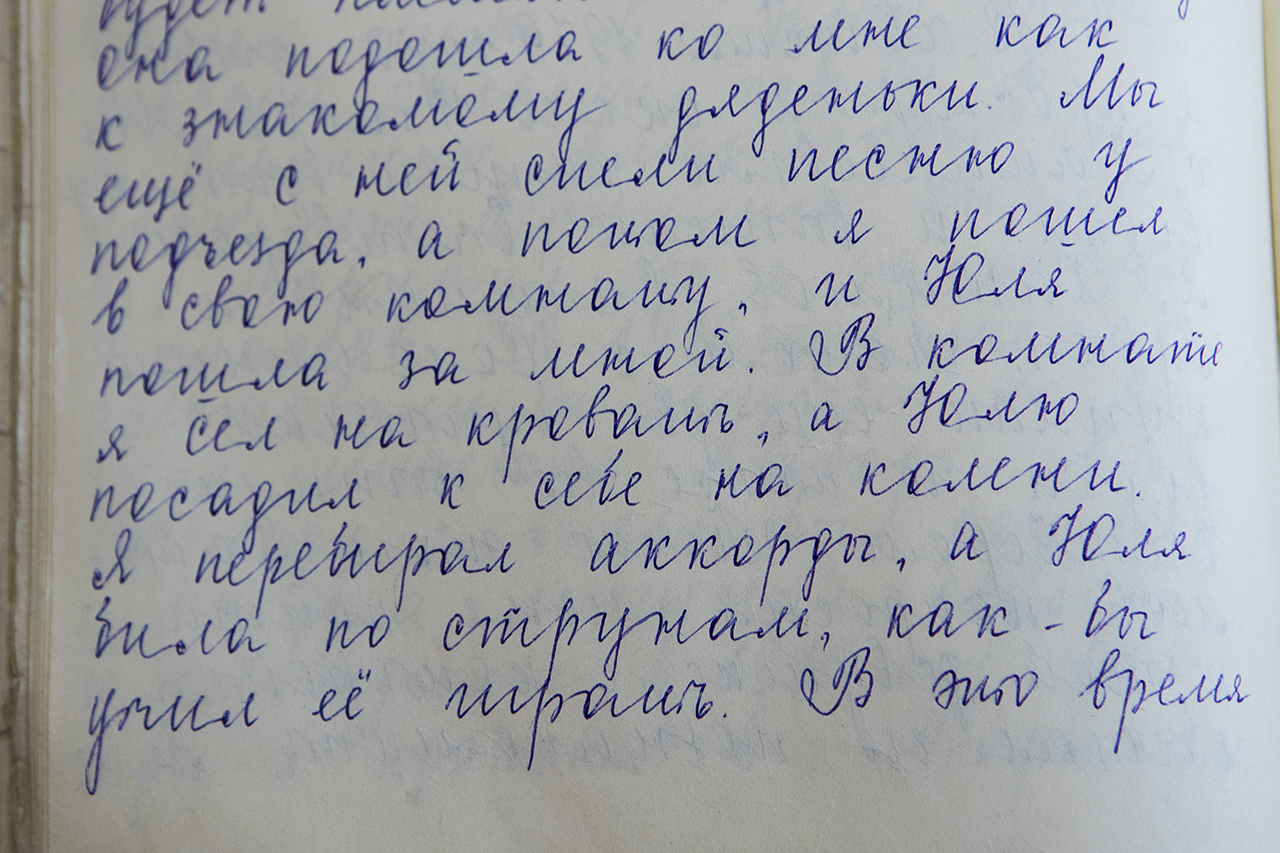 будет
она подошла ко мне как
к знакомому дяденьки. Мы
ещё с ней спели песню у
подъезда, а потом я пошел
в свою комнату, и Юля
пошла за мной. В комнате
я сел на кровать, а Юлю
посадил к себе на колени.
Я перебирал аккорды, а Юля
била по струнам, как-бы
учил её играть. В это время